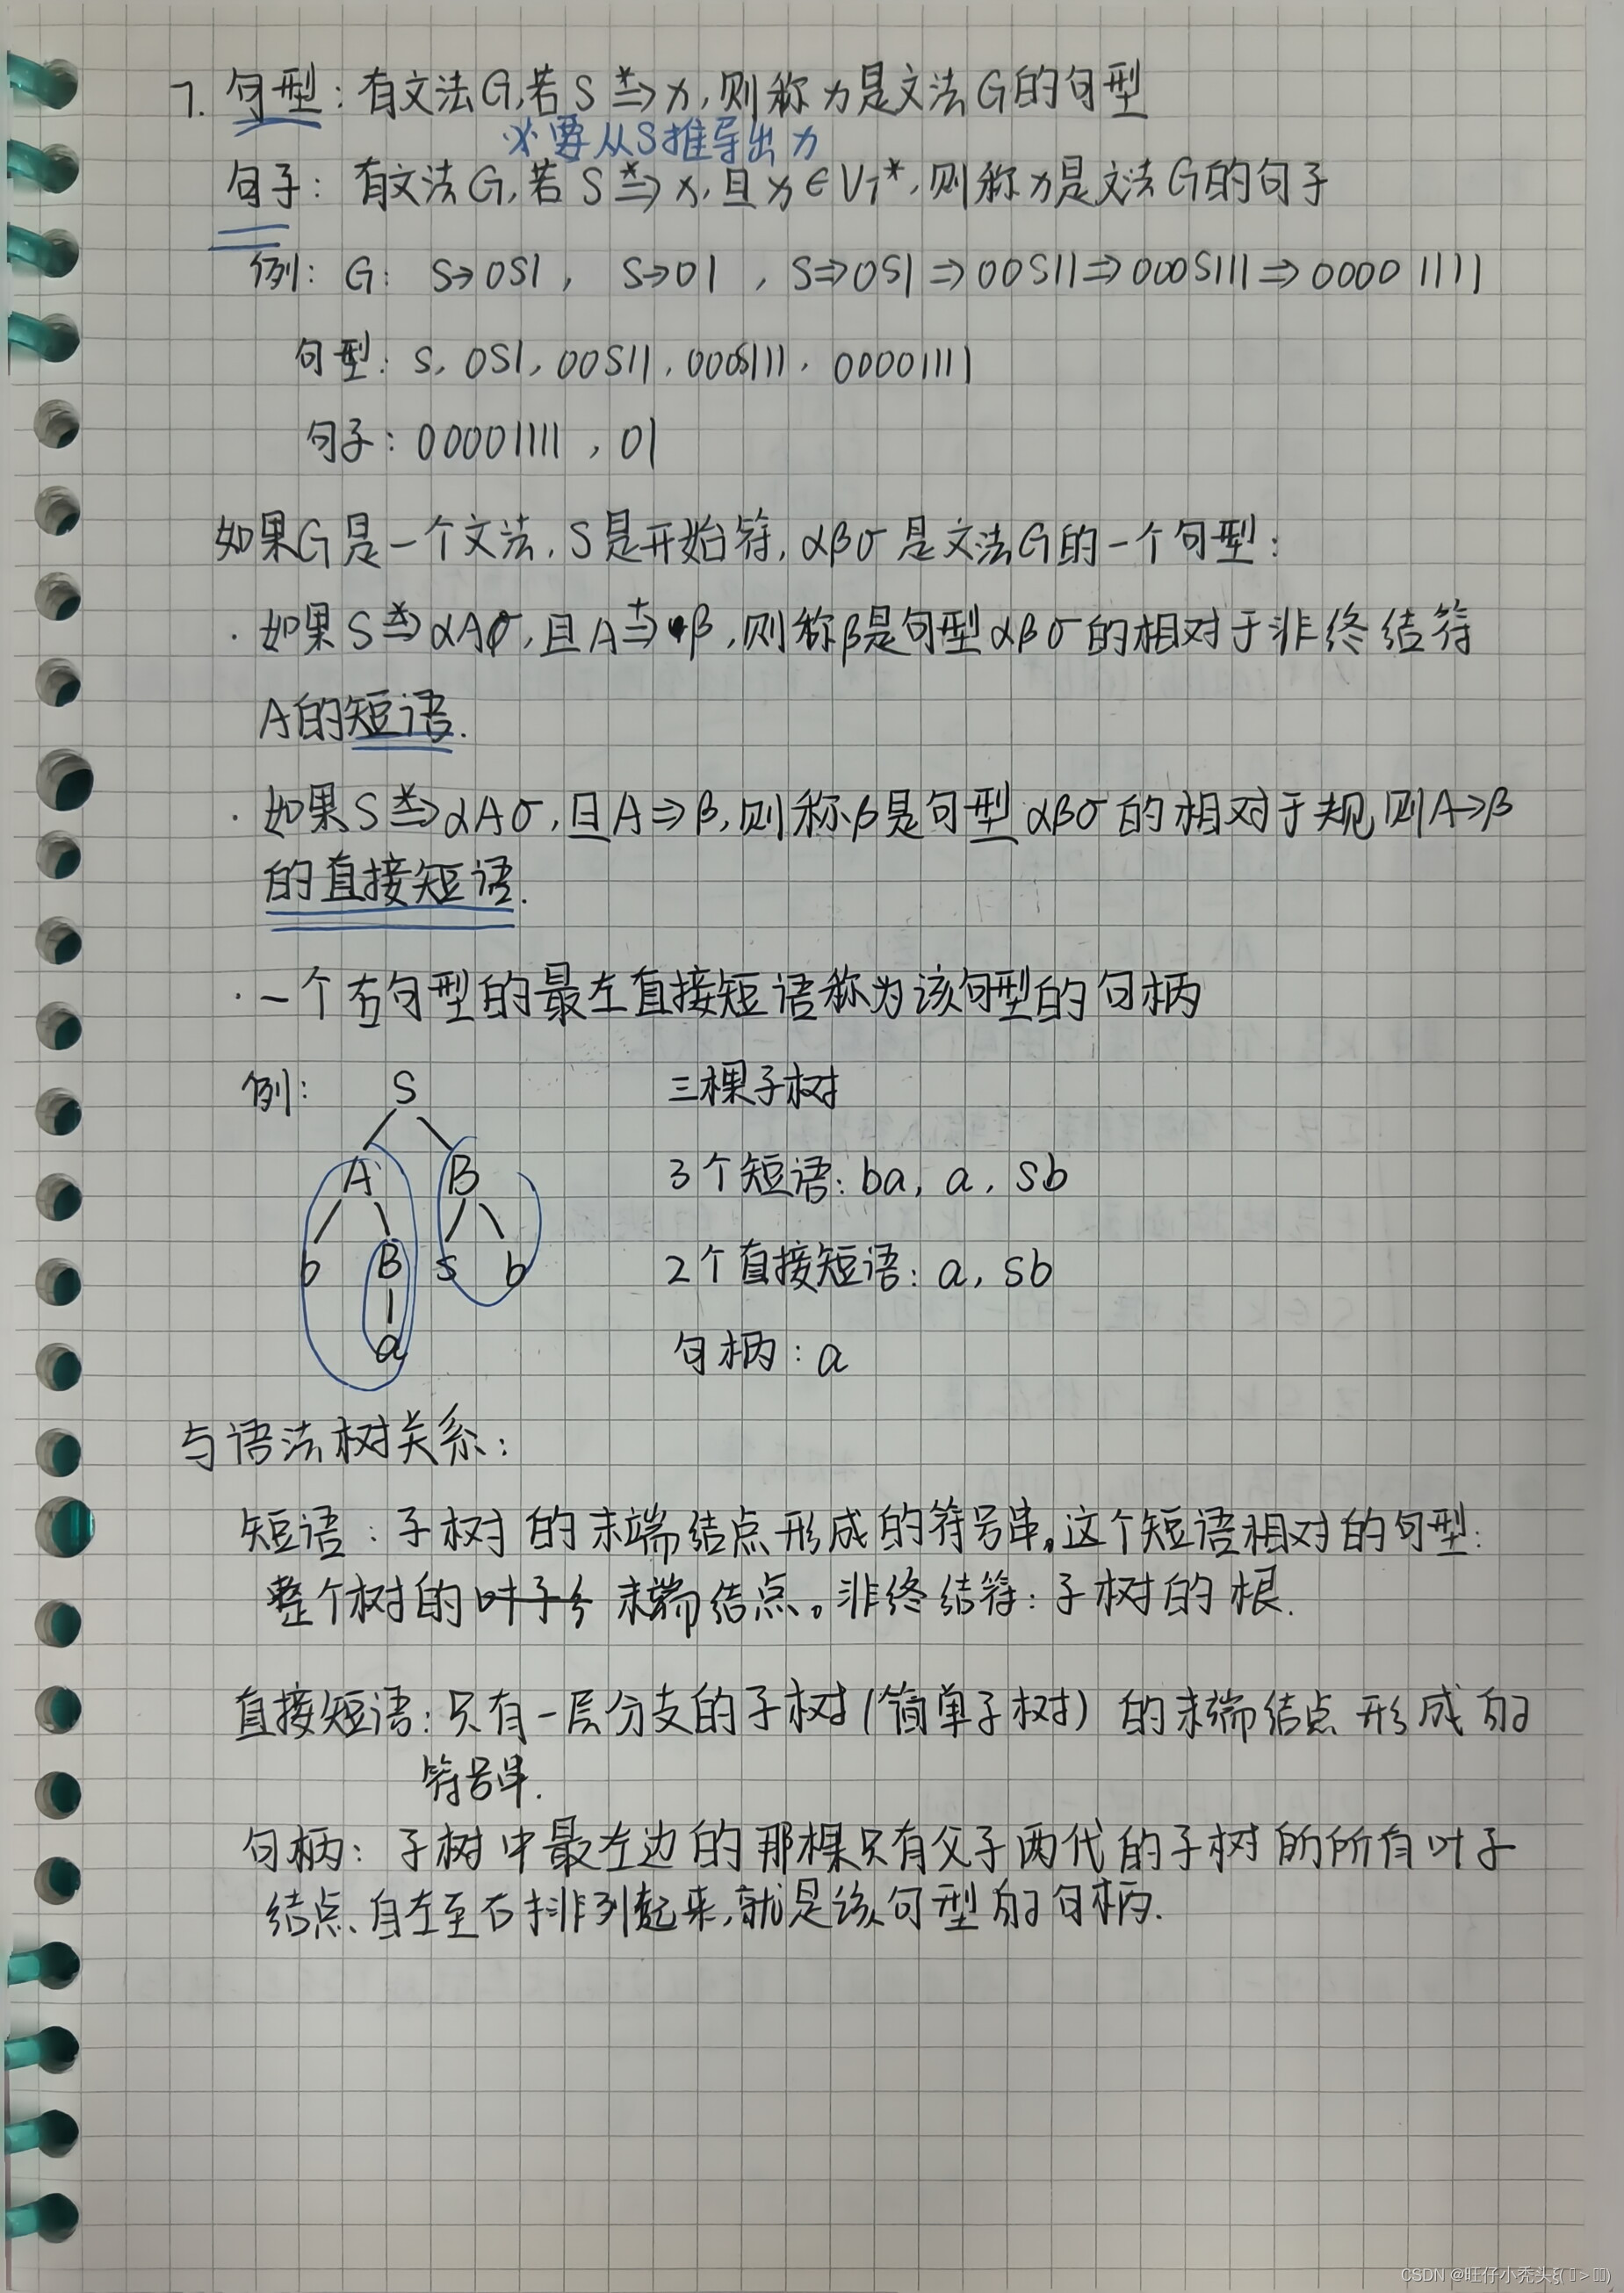 7. 句型：有文法G,若S *⇒ x,则称x是文法G的句型
※要从S推导出x
句子：有文法G,若S *⇒ x,且x∈VT*,则称x是文法G的句子
例：G: S→0S1, S→01, S⇒0S1⇒00S11⇒000S111⇒00001111
句型：S, 0S1, 00S11, 000S111, 00001111
句子：00001111, 01
如果G是一个文法,S是开始符,αβσ是文法G的一个句型：
·如果S *⇒ αAσ,且A +⇒ β,则称β是句型αβσ的相对于非终结符
A的短语.
·如果S *⇒ αAσ,且A⇒β,则称β是句型αβσ的相对于规则A→β
的直接短语.
·一个右句型的最左直接短语称为该句型的句柄
例： S 三棵子树
A B 3个短语：ba, a, sb
b B s b 2个直接短语：a, sb
a 句柄：a
与语法树关系：
短语：子树的末端结点形成的符号串。这个短语相对的句型：
整个树的叶子 末端结点。非终结符：子树的根.
直接短语：只有一层分支的子树(简单子树)的末端结点形成的
符号串.
句柄：子树中最左边的那棵只有父子两代的子树的所有叶子
结点、自左至右排列起来,就是该句型的句柄.
CSDN @旺仔小秃头